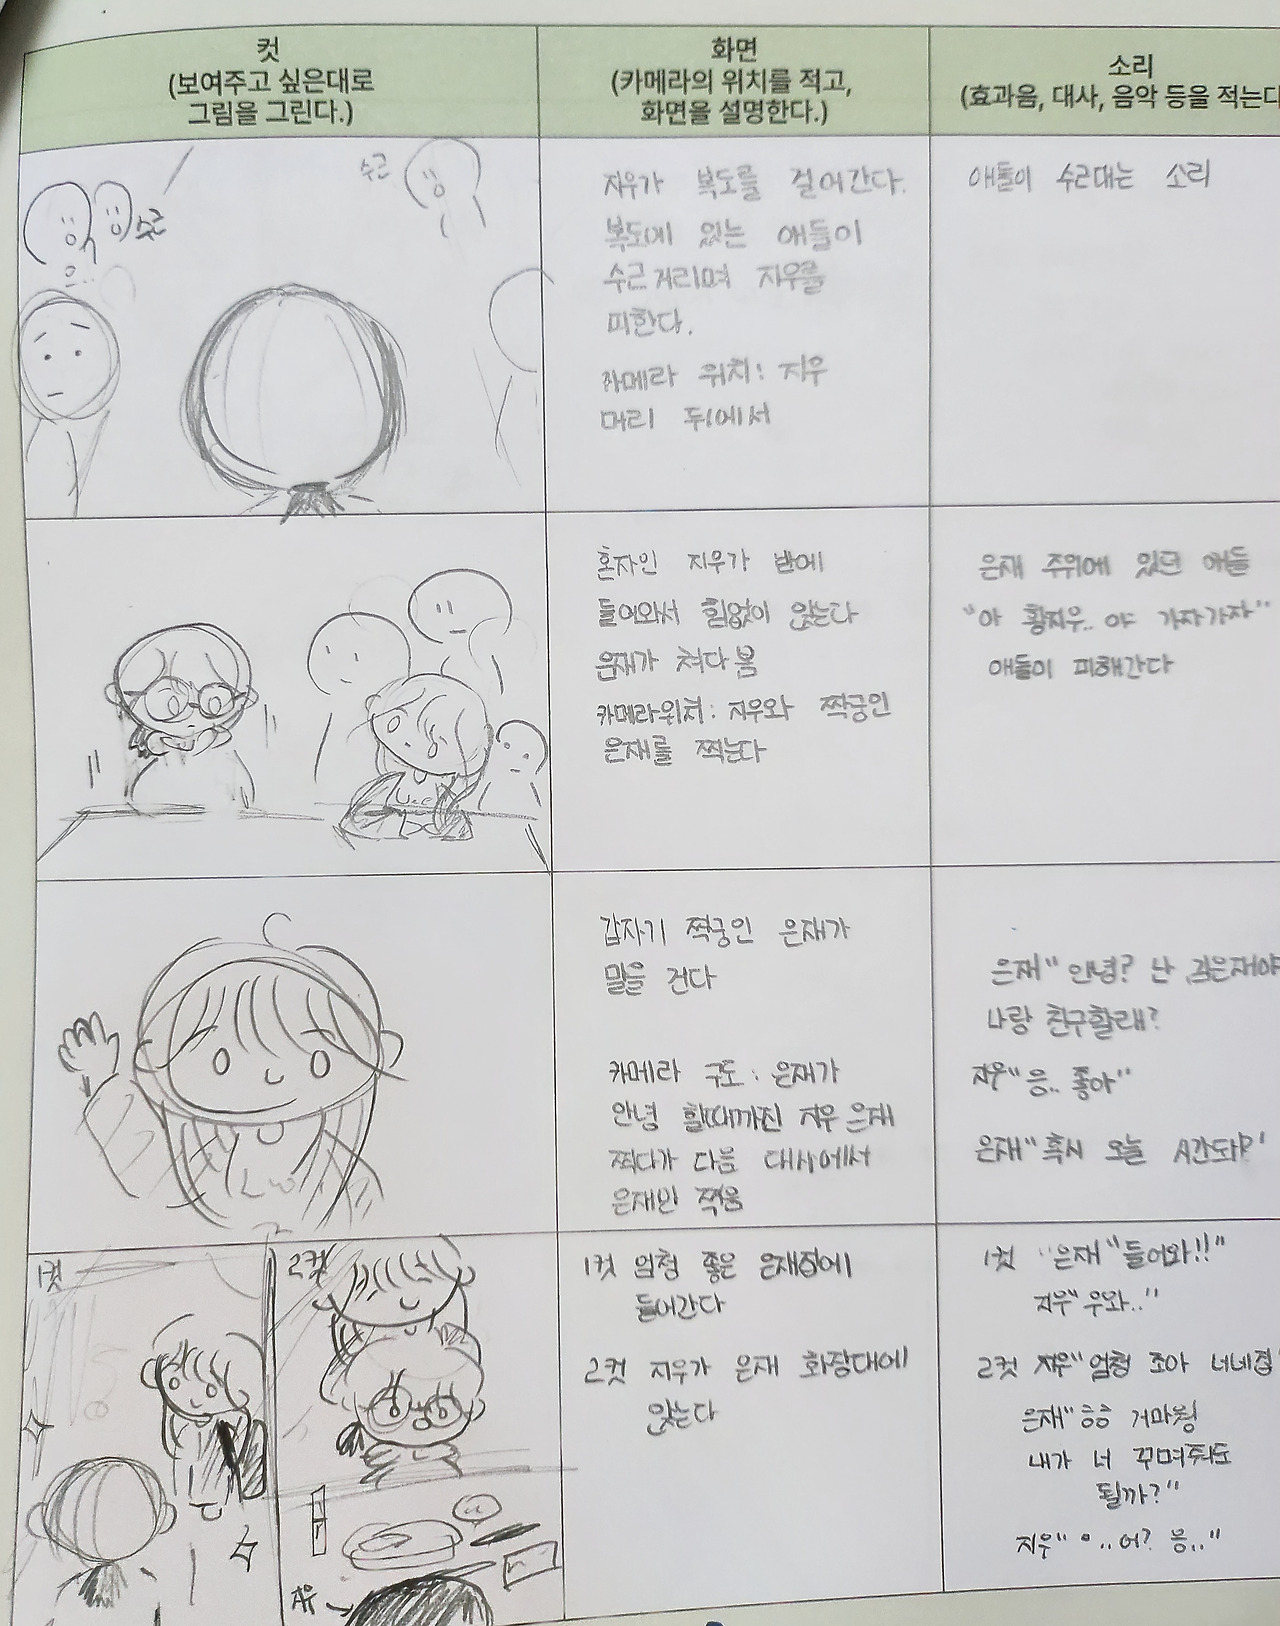 컷
(보여주고 싶은대로
그림을 그린다.)
화면
(카메라의 위치를 적고,
화면을 설명한다.)
소리
(효과음, 대사, 음악 등을 적는다
수근
수근
지우가 복도를 걸어간다.
복도에 있는 애들이
수근거리며 지우를
피한다.
카메라 위치: 지우
머리 뒤에서
애들이 수근대는 소리
혼자인 지우가 반에
들어와서 힘없이 앉는다
은재가 쳐다봄
카메라위치: 지우와 짝궁인
은재를 찍는다
은재 주위에 있던 애들
"아 황지우.. 야 가자가자"
애들이 피해간다
갑자기 짝궁인 은재가
말을 건다
카메라 구도: 은재가
안녕 할때까진 지우 은재
찍다가 다음 대사에서
은재만 찍음
은재"안녕? 난 김은재야
나랑 친구할래?
지우"응.. 좋아"
은재"혹시 오늘 시간돼?"
1컷
2컷
1컷 엄청 좋은 은재집에
들어간다
2컷 지우가 은재 화장대에
앉는다
1컷 "은재"들어와!!"
지우"우와.."
2컷 지우"엄청 조아 너네집
은재"ㅎㅎ 거마웡
내가 너 꾸며줘도
될까?"
지우"ㅇ..어? 응.."